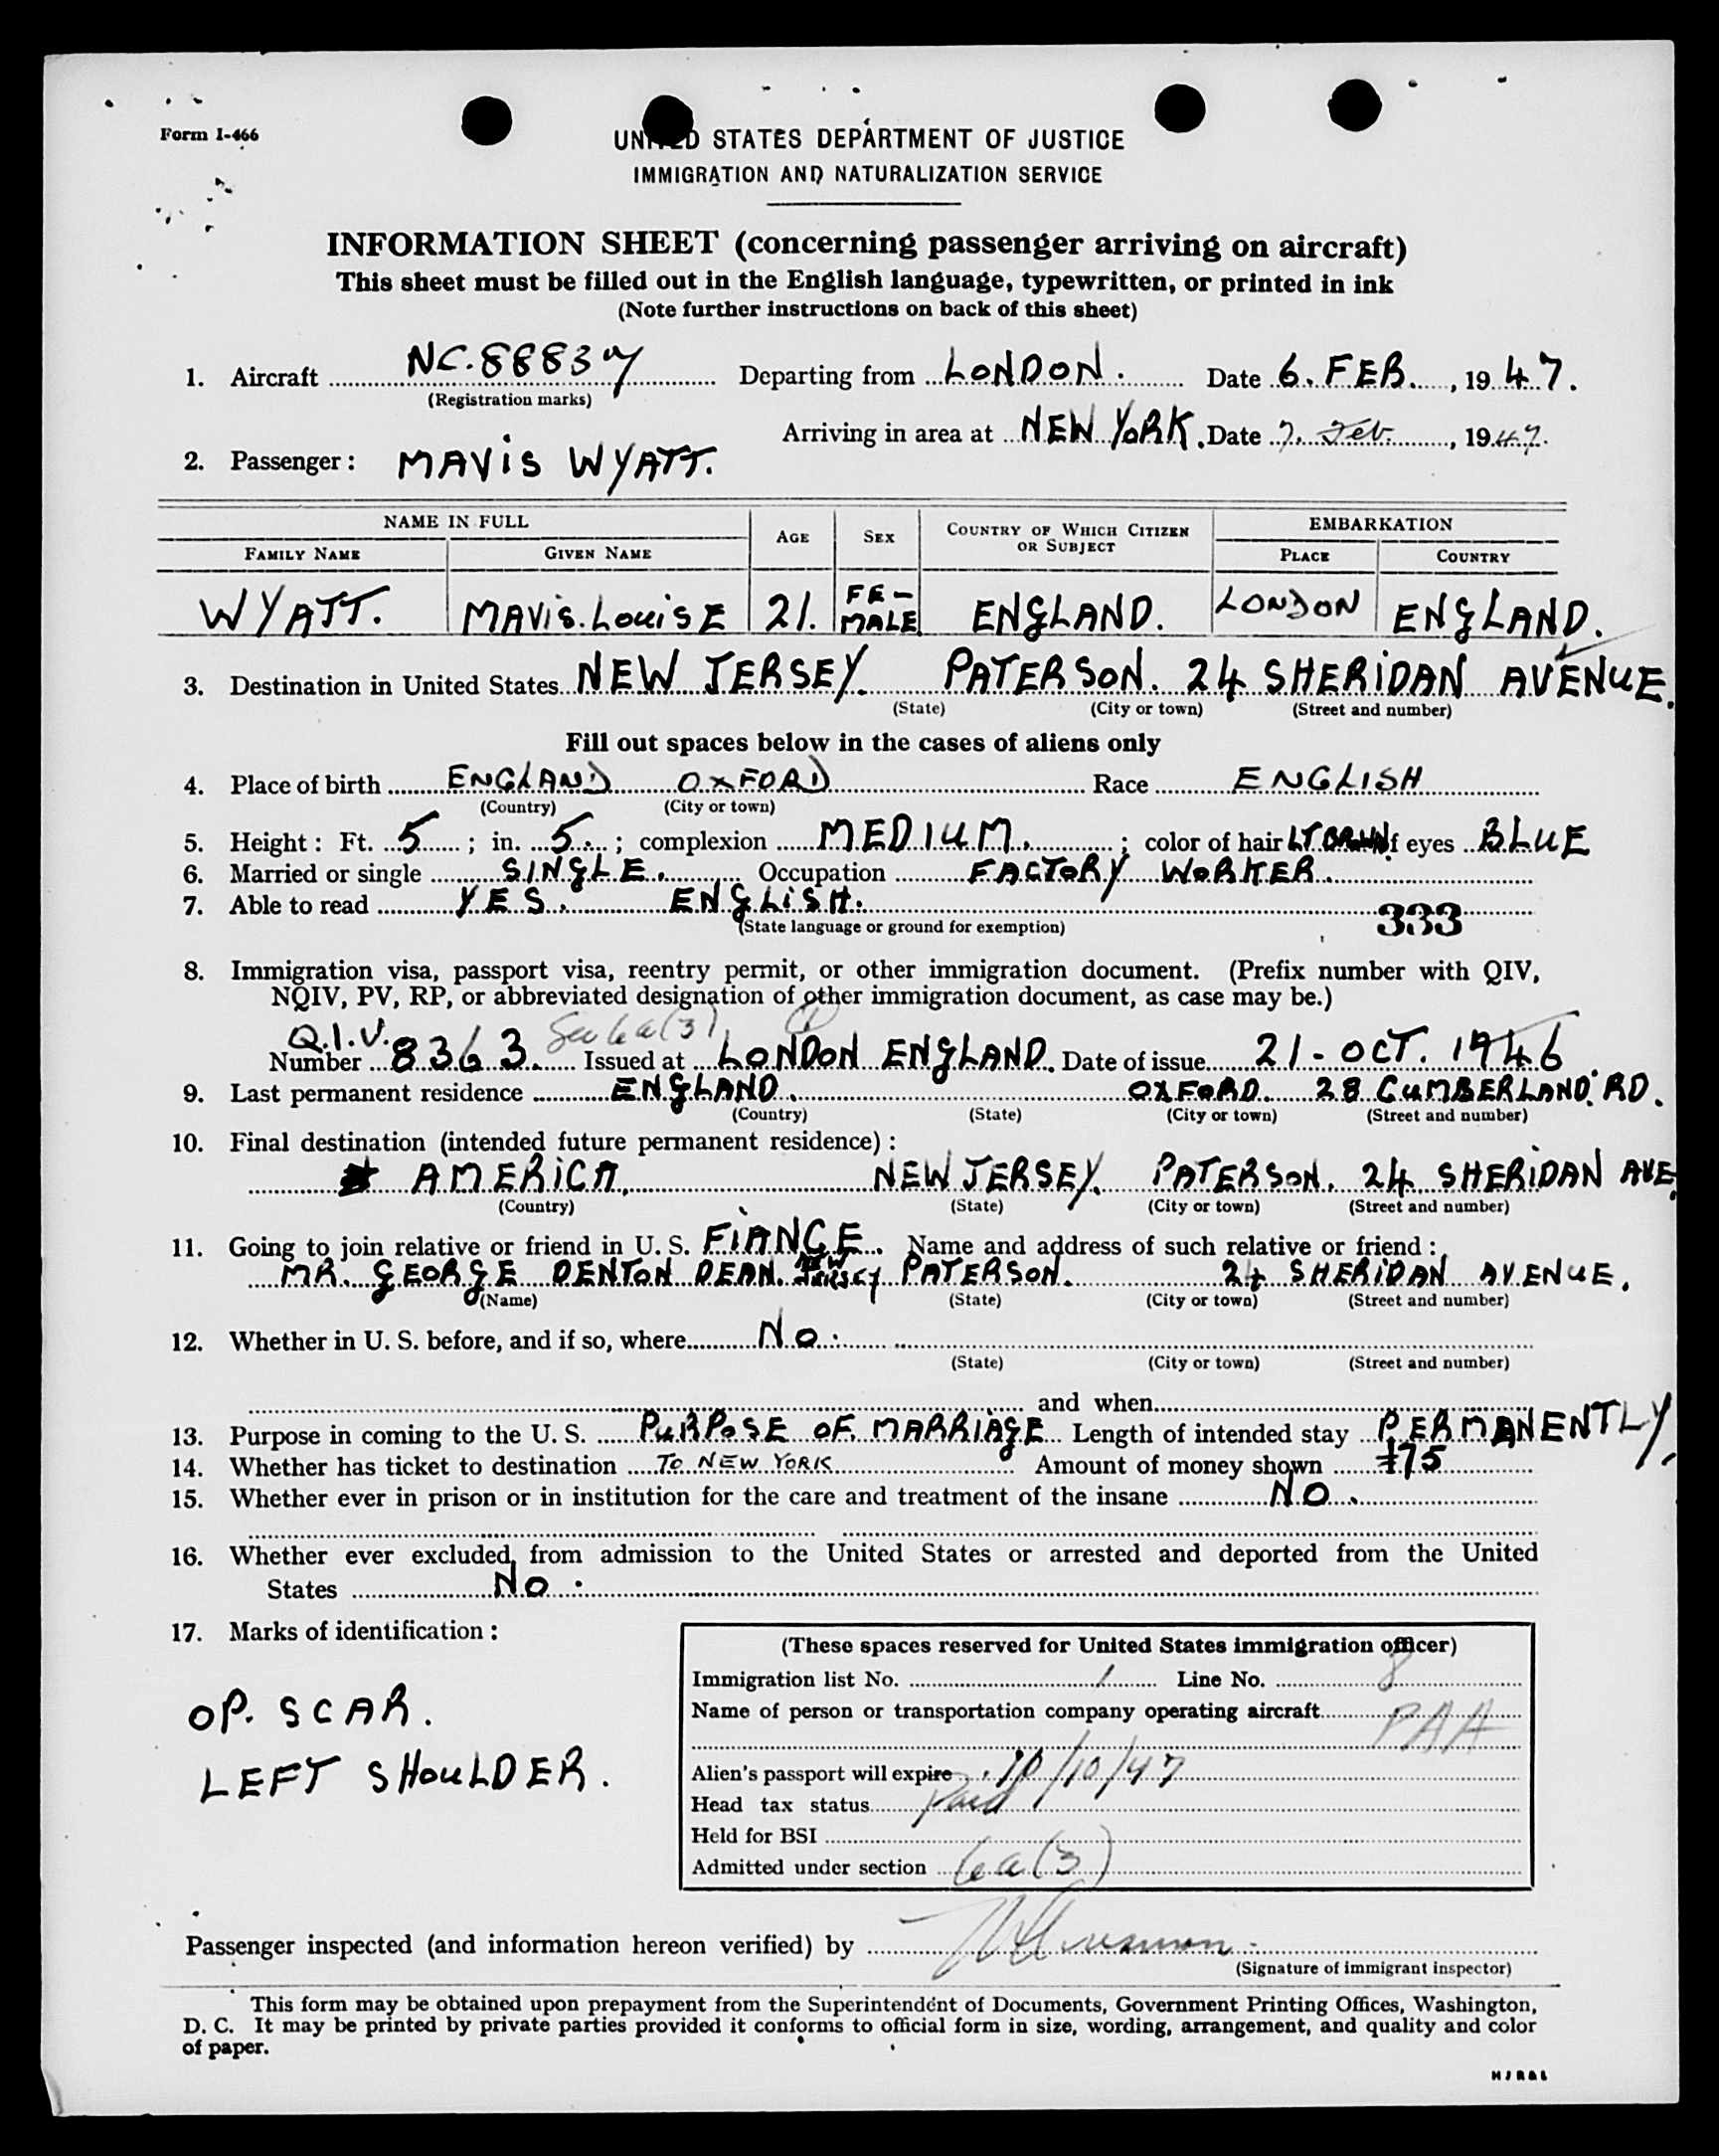 Form I-466
UNITED STATES DEPARTMENT OF JUSTICE
IMMIGRATION AND NATURALIZATION SERVICE
INFORMATION SHEET (concerning passenger arriving on aircraft)
This sheet must be filled out in the English language, typewritten, or printed in ink
(Note further instructions on back of this sheet)
1. Aircraft NC.88837 Departing from LONDON. Date 6. FEB., 1947.
(Registration marks)
Arriving in area at NEW YORK. Date 7. Feb., 1947.
2. Passenger: MAVIS WYATT.
NAME IN FULL AGE SEX COUNTRY OF WHICH CITIZEN OR SUBJECT EMBARKATION
FAMILY NAME GIVEN NAME PLACE COUNTRY
WYATT. MAVIS. LOUISE 21. FE-MALE ENGLAND. LONDON ENGLAND.
3. Destination in United States NEW JERSEY. PATERSON. 24 SHERIDAN AVENUE.
(State) (City or town) (Street and number)
Fill out spaces below in the cases of aliens only
4. Place of birth ENGLAND OXFORD Race ENGLISH
(Country) (City or town)
5. Height: Ft. 5; in. 5.; complexion MEDIUM.; color of hair LT. BRWN of eyes BLUE
6. Married or single SINGLE. Occupation FACTORY WORKER.
7. Able to read YES. ENGLISH.
(State language or ground for exemption) 333
8. Immigration visa, passport visa, reentry permit, or other immigration document. (Prefix number with QIV,
NQIV, PV, RP, or abbreviated designation of other immigration document, as case may be.)
Q.I.V. Sec 6a(3)
Number 8363. Issued at LONDON ENGLAND. Date of issue 21-OCT. 1946
9. Last permanent residence ENGLAND. OXFORD. 28 CUMBERLAND. RD.
(Country) (State) (City or town) (Street and number)
10. Final destination (intended future permanent residence):
AMERICA. NEW JERSEY. PATERSON. 24 SHERIDAN AVE.
(Country) (State) (City or town) (Street and number)
11. Going to join relative or friend in U. S. FIANCE. Name and address of such relative or friend:
MR. GEORGE DENTON DEAN. NEW JERSEY PATERSON. 24 SHERIDAN AVENUE.
(Name) (State) (City or town) (Street and number)
12. Whether in U. S. before, and if so, where NO.
(State) (City or town) (Street and number)
and when
13. Purpose in coming to the U. S. PURPOSE OF MARRIAGE Length of intended stay PERMANENTLY.
14. Whether has ticket to destination TO NEW YORK Amount of money shown $75
15. Whether ever in prison or in institution for the care and treatment of the insane NO.
16. Whether ever excluded from admission to the United States or arrested and deported from the United
States NO.
17. Marks of identification:
OP. SCAR.
LEFT SHOULDER.
(These spaces reserved for United States immigration officer)
Immigration list No. 1 Line No. 8
Name of person or transportation company operating aircraft PAA
Alien's passport will expire 10/10/47
Head tax status Paid
Held for BSI
Admitted under section 6a(3)
Passenger inspected (and information hereon verified) by
(Signature of immigrant inspector)
This form may be obtained upon prepayment from the Superintendent of Documents, Government Printing Offices, Washington,
D. C. It may be printed by private parties provided it conforms to official form in size, wording, arrangement, and quality and color
of paper.